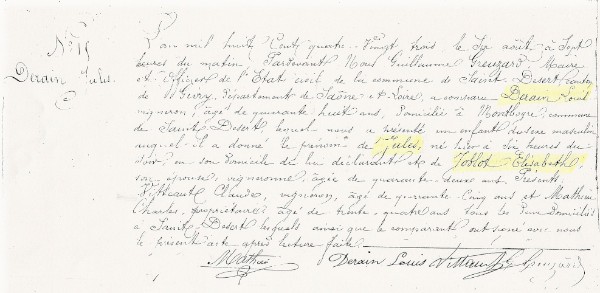 N° 15
Derain Jules.
L'an mil huit Cent quatre-Vingt trois, le Six août à Sept
heures du matin, Pardevant Nous Guillaume Greuzard, Maire
et Officier de l'Etat civil de la commune de Saint-Desert, Canton
de Givry, Département de Saône et Loire, a comparu Derain Louis
vigneron, âgé de quarante huit ans, Domicilié à Montbogre, commune
de Saint Desert, lequel nous a présenté un enfant du sexe masculin
auquel il a donné le prénom de Jules, né hier à Six heures du
soir, en son Domicile de lui déclarant et de Joblot Elisabeth
son épouse, vigneronne, âgée de quarante-deux ans. Présents
Vitteaut Claude, vigneron, âgé de quarante Cinq ans et Mathieu
Charles, propriétaire, âgé de trente-quatre ans tous les Deux Domiciliés
à Saint Desert lesquels ainsi que le comparant ont signé avec nous
le présent acte après lecture faite.
Mathieu Derain Louis Vitteaut Greuzard